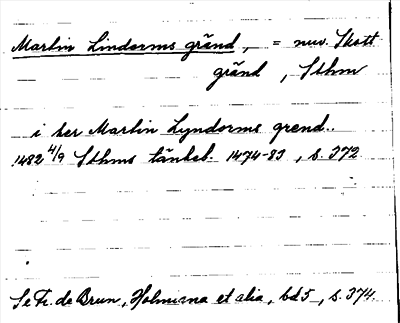 Martin Lindorms gränd, = nuv. Skott
gränd, Sthm
i her Martin Lyndorms grend..
1482 4/9 Sthms tänkeb. 1474-83, s. 372
Se Fr. de Brun, Holmiana et alia, bd 5, s. 374.